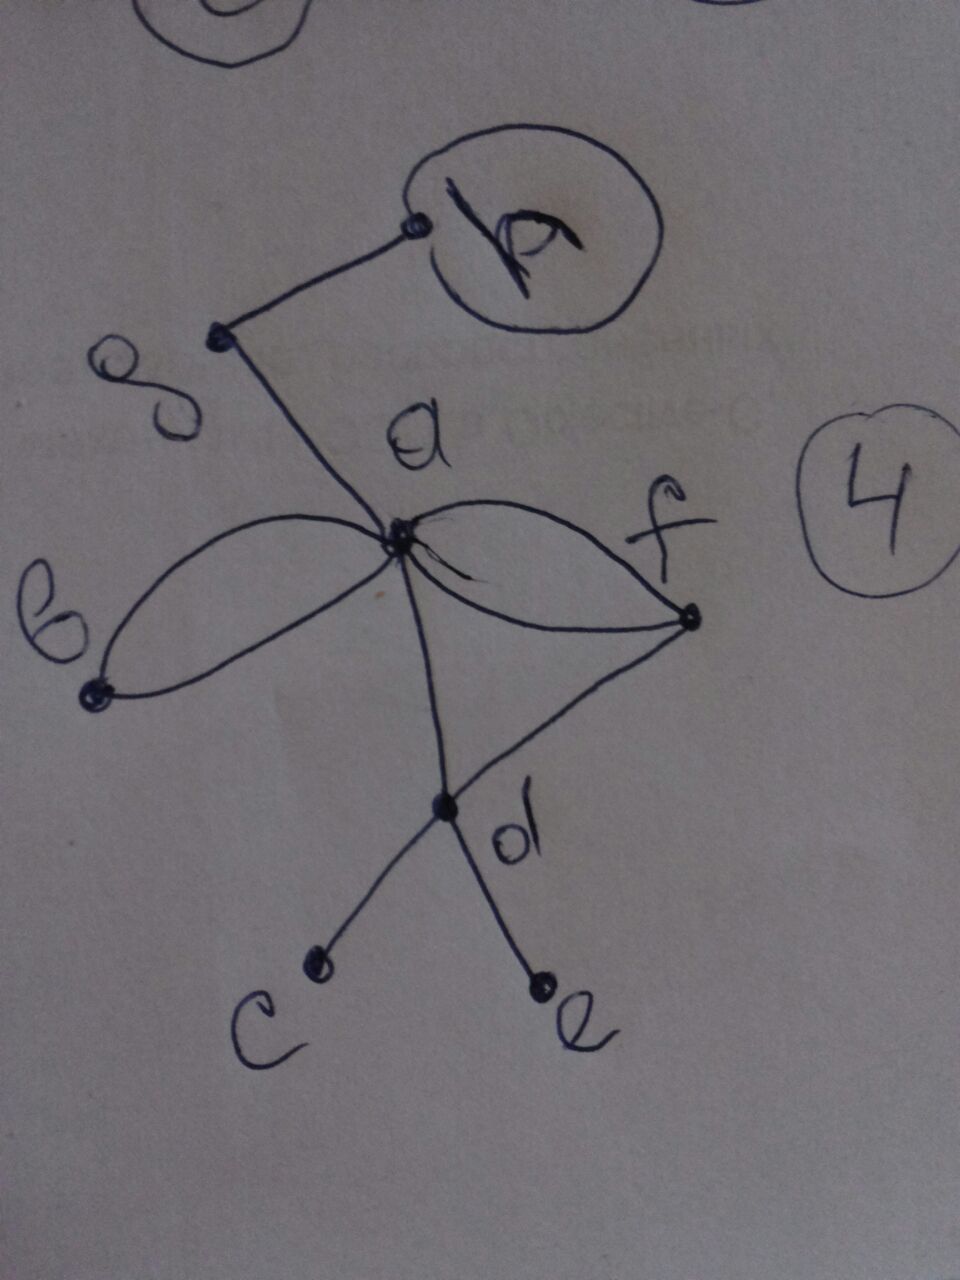 g
a
f
4
b
d
c
e